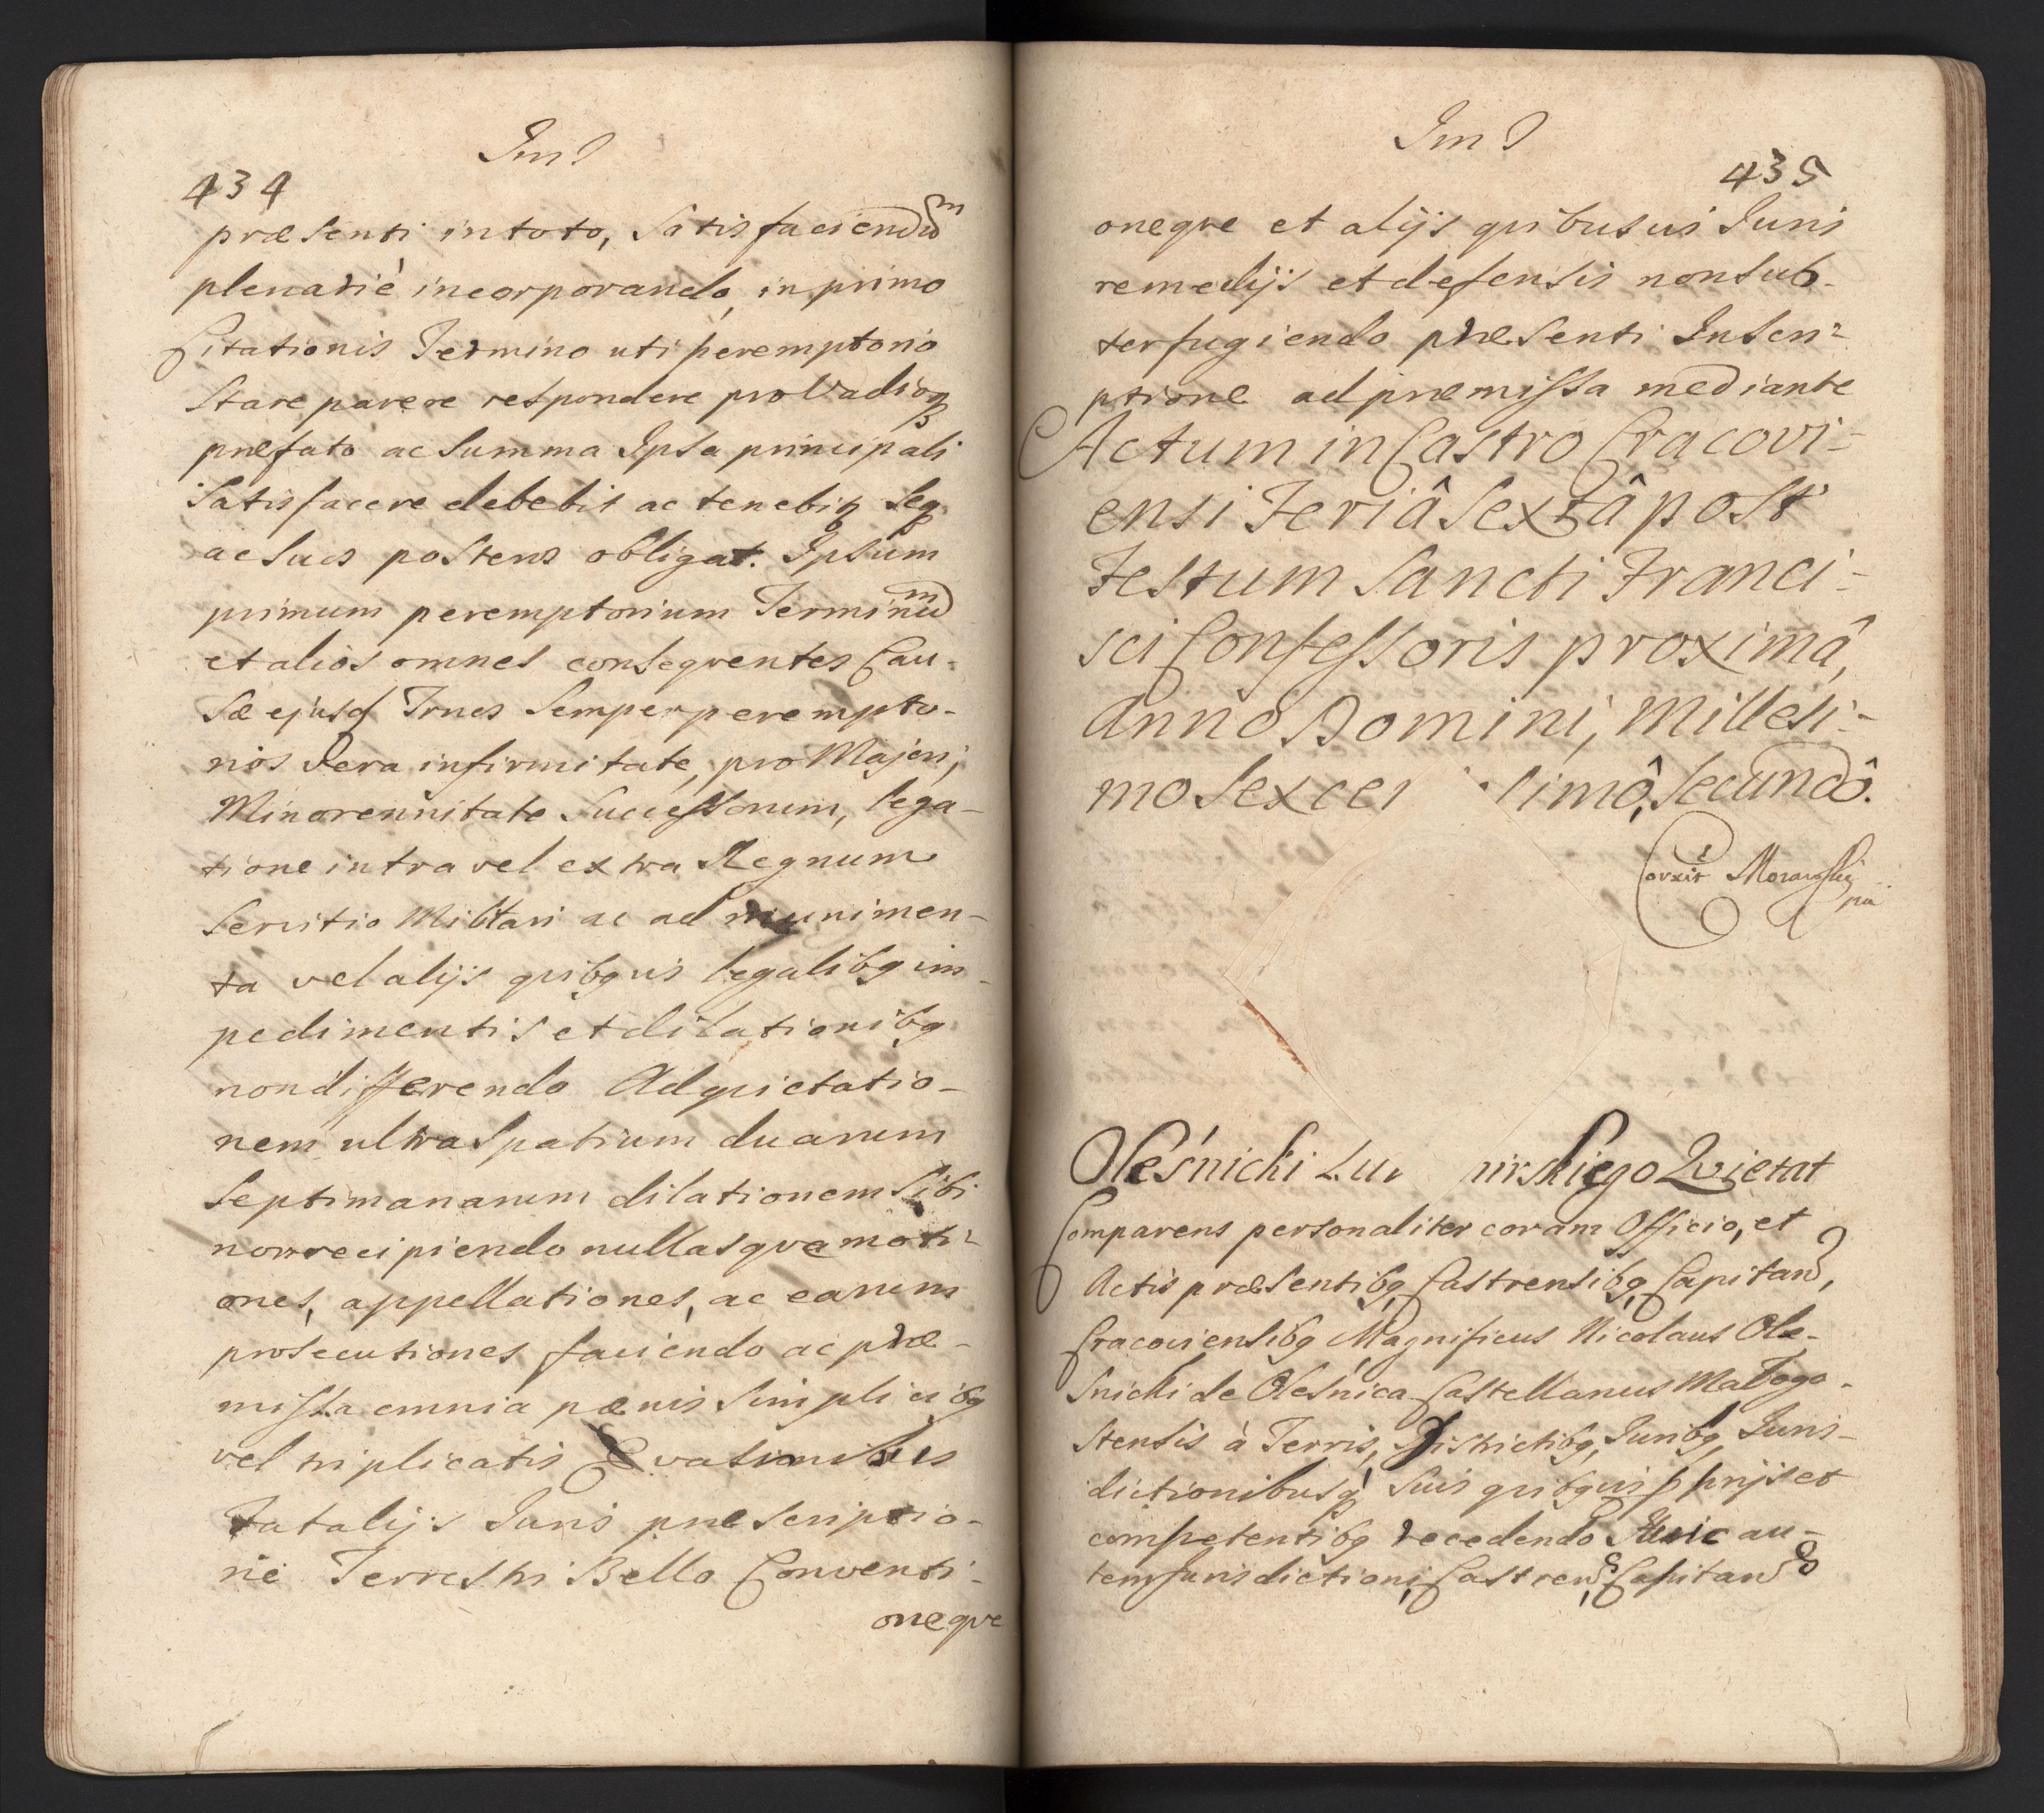 Im
434
præsenti in toto, Satisfaciendum
plenarie incorporando, in primo
Citationis Termino uti peremptorio
Stare parere respondere pro Vadioq
præfato ac Summa Ipsa principali
Satisfacere debebit ac tenebitr Seq
ac Suos posteros obligat. Ipsum
primum peremptorium Terminum
et alios omnes consequentes Cau-
sæ ejusd Trnos Semper perempto-
rios Vera infirmitate, pro Majori,
Minorennitate Successorum, lega-
tione intra vel extra Regnum
Servitio Militari ac ad munimen-
ta vel alijs quibqvis legalibq im-
pedimentis et dilationibq
non differendo Adquietatio-
nem ultra Spatium duarum
Septimanarum dilationem Sibi
non recipiendo nullasqve moti-
ones, appellationes, ac earum
prosecutiones faciendo ac præ-
missa omnia pœnis Simplicibq
vel triplicatis Evasionibus
Fatalijs Juris præscriptio-
ne Terrestri Bello Conventi-
oneqve
Im
435
oneqve et alijs quibusvis Juris
remedijs et defensis non sub-
terfugiendo præsenti Inscri-
ptione ad præmissa mediante
Actum in Castro Cracovi-
ensi Feriâ Sextâ post
Festum Sancti Franci-
sci Confessoris proximâ,
Anno Domini, Millesi-
mo Sexcen timô, Secundô.
Corxit Morawski
Oleśnicki Lu nirskiego Qvietat
Comparens personaliter coram Officio, et
Actis præsentibq Castrensibq Capitan,
Cracoviensibq Magnificus Nicolaus Ole-
snicki de Oleśnica Castellanus Małogo-
stensis à Terris, Districtibq, Juribq, Juris-
dictionibusq Suis quibqvis pprijs et
competentibq recedendo Huic au-
tem Jurisdictioni Castren, Capitan